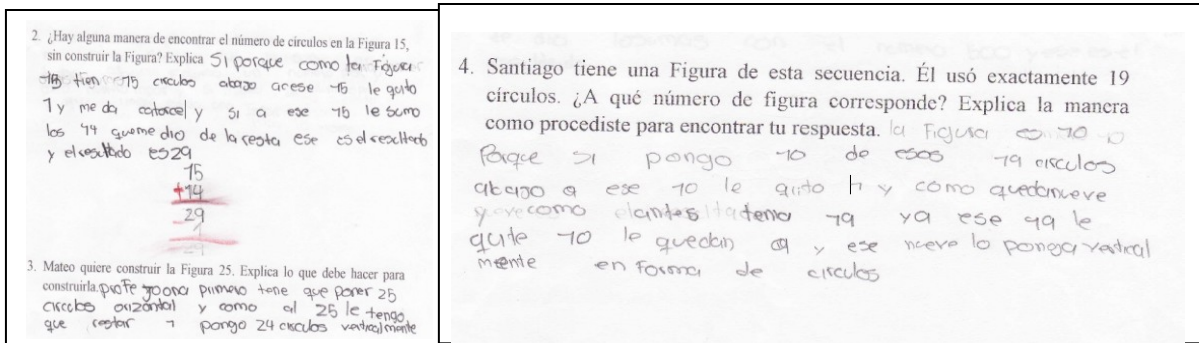 2. ¿Hay alguna manera de encontrar el número de círculos en la Figura 15,
sin construir la Figura? Explica Si porque como la Figura
15 tiene 15 circulos abajo a ese 15 le quito
1 y me da catorce y si a ese 15 le sumo
los 14 que me dio de la resta ese es el resultado
y el resultado es 29
15
+14
29
3. Mateo quiere construir la Figura 25. Explica lo que debe hacer para
construirla. profe primero tene que poner 25
circulos orizontal y como al 25 le tengo
que restar 1 pongo 24 circulos verticalmente
4. Santiago tiene una Figura de esta secuencia. Él usó exactamente 19
círculos. ¿A qué número de figura corresponde? Explica la manera
como procediste para encontrar tu respuesta. la Figura es 10
Porque si pongo 10 de esos 19 circulos
abajo a ese 10 le quito 1 y como queda nueve
como antes tenia 19 ya ese 19 le
quite 10 le quedan 9 y ese nueve lo ponga vertical
mente en Forma de circulos